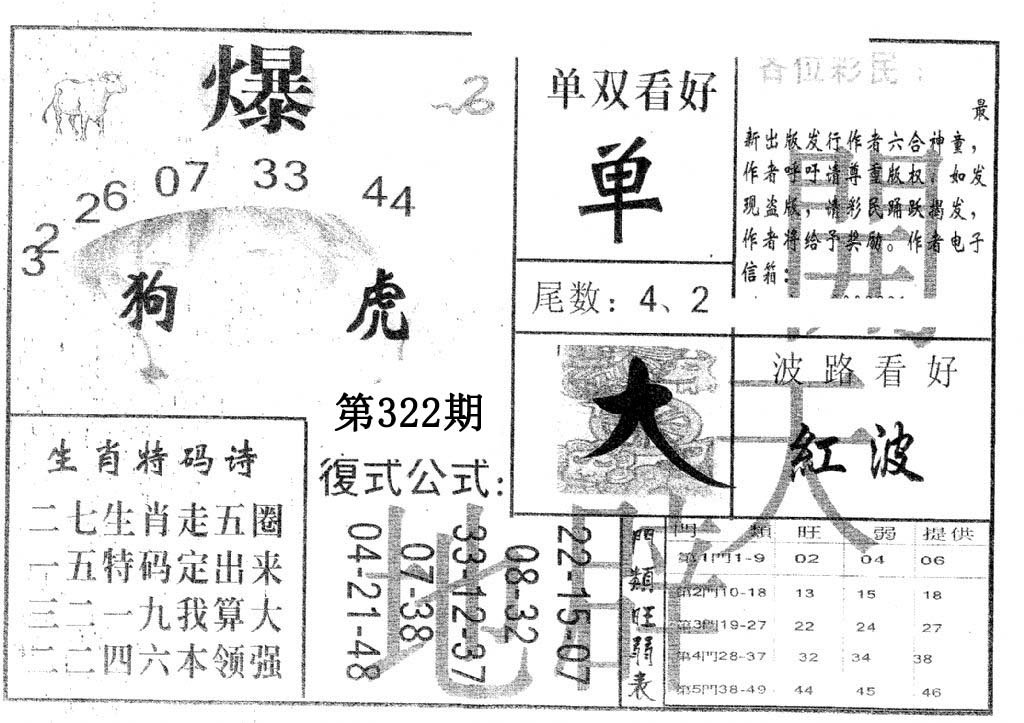 爆
26
07
33
44
狗
虎
第322期
单双看好
单
尾数：4、2
各位彩民：
最
新出版发行作者六合神童，
作者呼吁请尊重版权，如发
现盗版，请彩民踊跃揭发，
作者将给予奖励。作者电子
信箱：
大
波路看好
紅波
生肖特码诗
二七生肖走五圈
一五特码定出来
三二一九我算大
二二四六本领强
復式公式：
04-21-48
07-38
33-12-37
08-32
22-15-07
門類旺弱表
門類 旺 弱 提供
第1門1-9 02 04 06
第2門10-18 13 15 18
第3門19-27 22 24 27
第4門28-37 32 34 38
第5門38-49 44 45 46